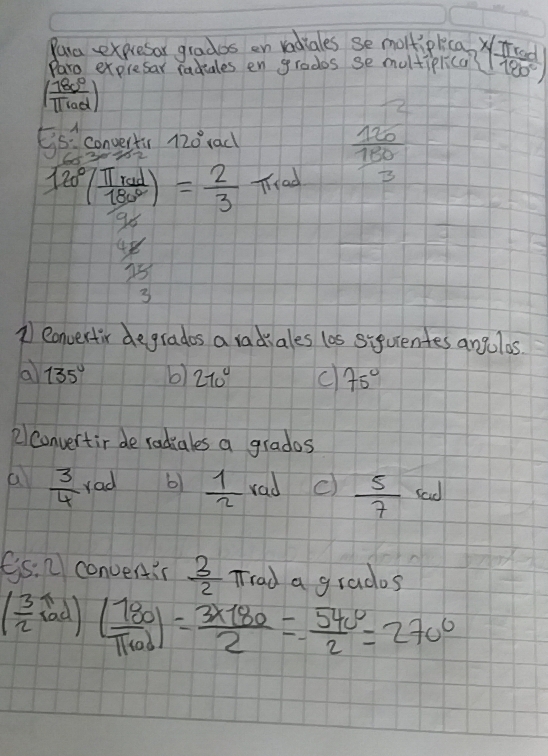 Para expresar grados en radiales se moltiplica x(π rad/180°)
Para expresar radiales en grados se multiplica
(180°/π rad)
Ejs: 1 convertir 120° rad
120° (π rad/180°) = 2/3 π rad
120/180
3
90
45
15
3
1) Convertir de grados a radiales los siguientes angulos.
a) 135° b) 210° c) 75°
2) Convertir de radiales a grados
a) 3/4 rad b) 1/2 rad c) 5/7 rad
Ejs: 2) convertir 3/2 π rad a grados
(3/2 π rad) (180/π rad) = 3x180/2 = 540°/2 = 270°